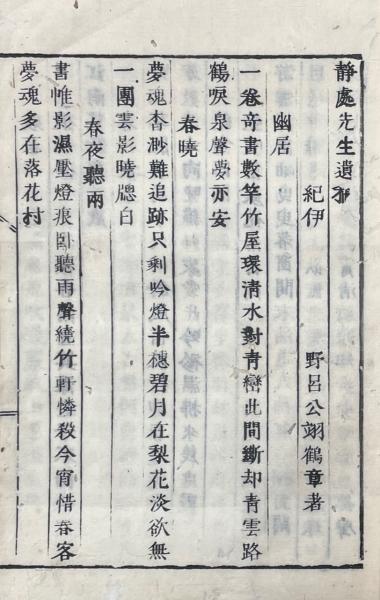 靜處先生遺稿
紀伊 野呂公翊鶴章著
幽居
一卷奇書數竿竹屋環清水對青巒此間斷却青雲路
鶴唳泉聲夢亦安
春曉
夢魂杳渺難追跡只剩吟燈半穗碧月在梨花淡欲無
一團雲影曉牕白
春夜聽雨
書帷影濕壓燈痕臥聽雨聲繞竹軒憐殺今宵惜春客
夢魂多在落花村